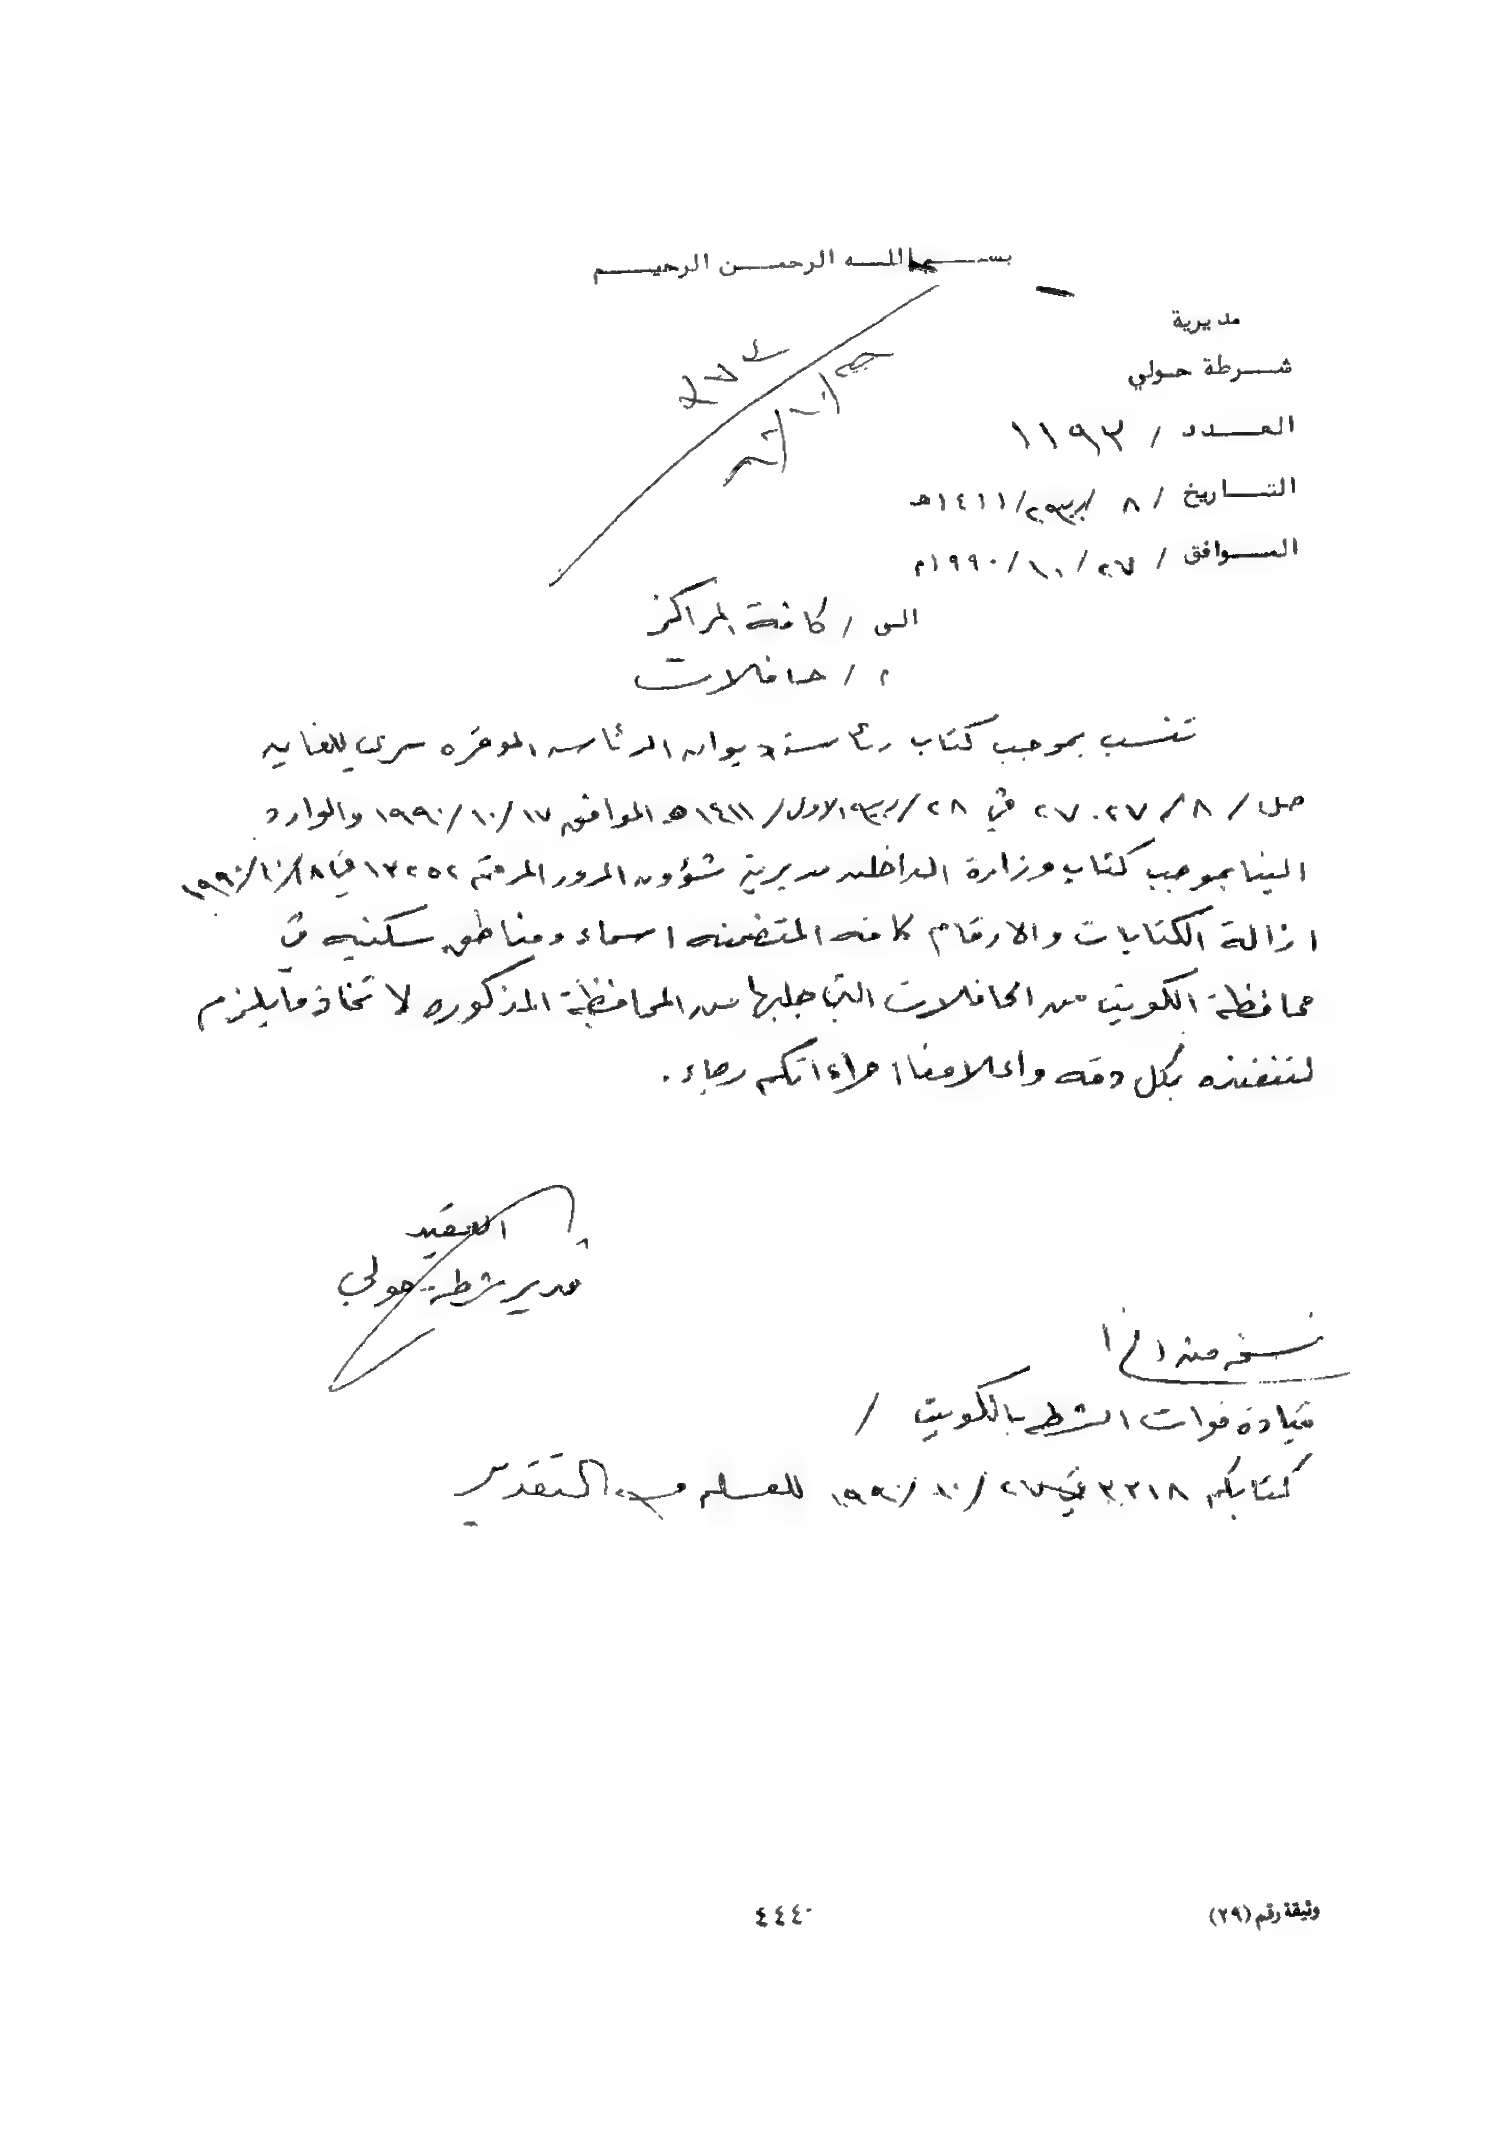 بسم الله الرحمن الرحيم
مديرية
شرطة حولي
العدد / ١١٩٣
التاريخ / ٨ / ربيع٢ / ١٤١١هـ
الموافق / ٢٧ / ١٠ / ١٩٩٠م
٢٧٤
الى / كافة المراكز
م / حافلات
تنسب بموجب كتاب رئاسة ديوان الرئاسه الموقره سري للغايه
٨ / ٢٧٠٢٧ في ٢٨ / ربيع الاول / ١٤١١هـ الموافق ١٧ / ١٠ / ١٩٩٠ والوارد
الينا بموجب كتاب وزارة الداخليه مديرية شؤون المرور المرقم ١٢٢٥٢ في ١٨ / ١٠ / ١٩٩٠
ازالة الكتابات والارقام كافه المتضمنه اسماء ومناطق سكنيه في
محافظة الكويت من الحافلات التي جلبها من المحافظة المذكوره لاتخاذ مايلزم
لتنفيذه بكل دقه واعلامنا اجراءاتكم رجاء .
العقيد
مدير شرطة حولي
نسخه منه الى /
قيادة قوات الشرطه بالكويت /
كتابكم ٣٢١٨ في ٢٦ / ١٠ / ١٩٩٠ للعلم مع التقدير
وثيقة رقم (٢٩)
٤٤٤٠